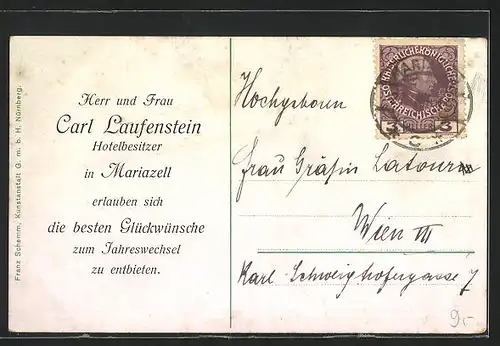 Franz Schemm, Kunstanstalt G. m. b. H. Nürnberg.
Herr und Frau
Carl Laufenstein
Hotelbesitzer
in Mariazell
erlauben sich
die besten Glückwünsche
zum Jahreswechsel
zu entbieten.
3 3
Hochgeboren
Frau Gräfin Latour
Wien III
Karl Schweighofergasse 7
9.-